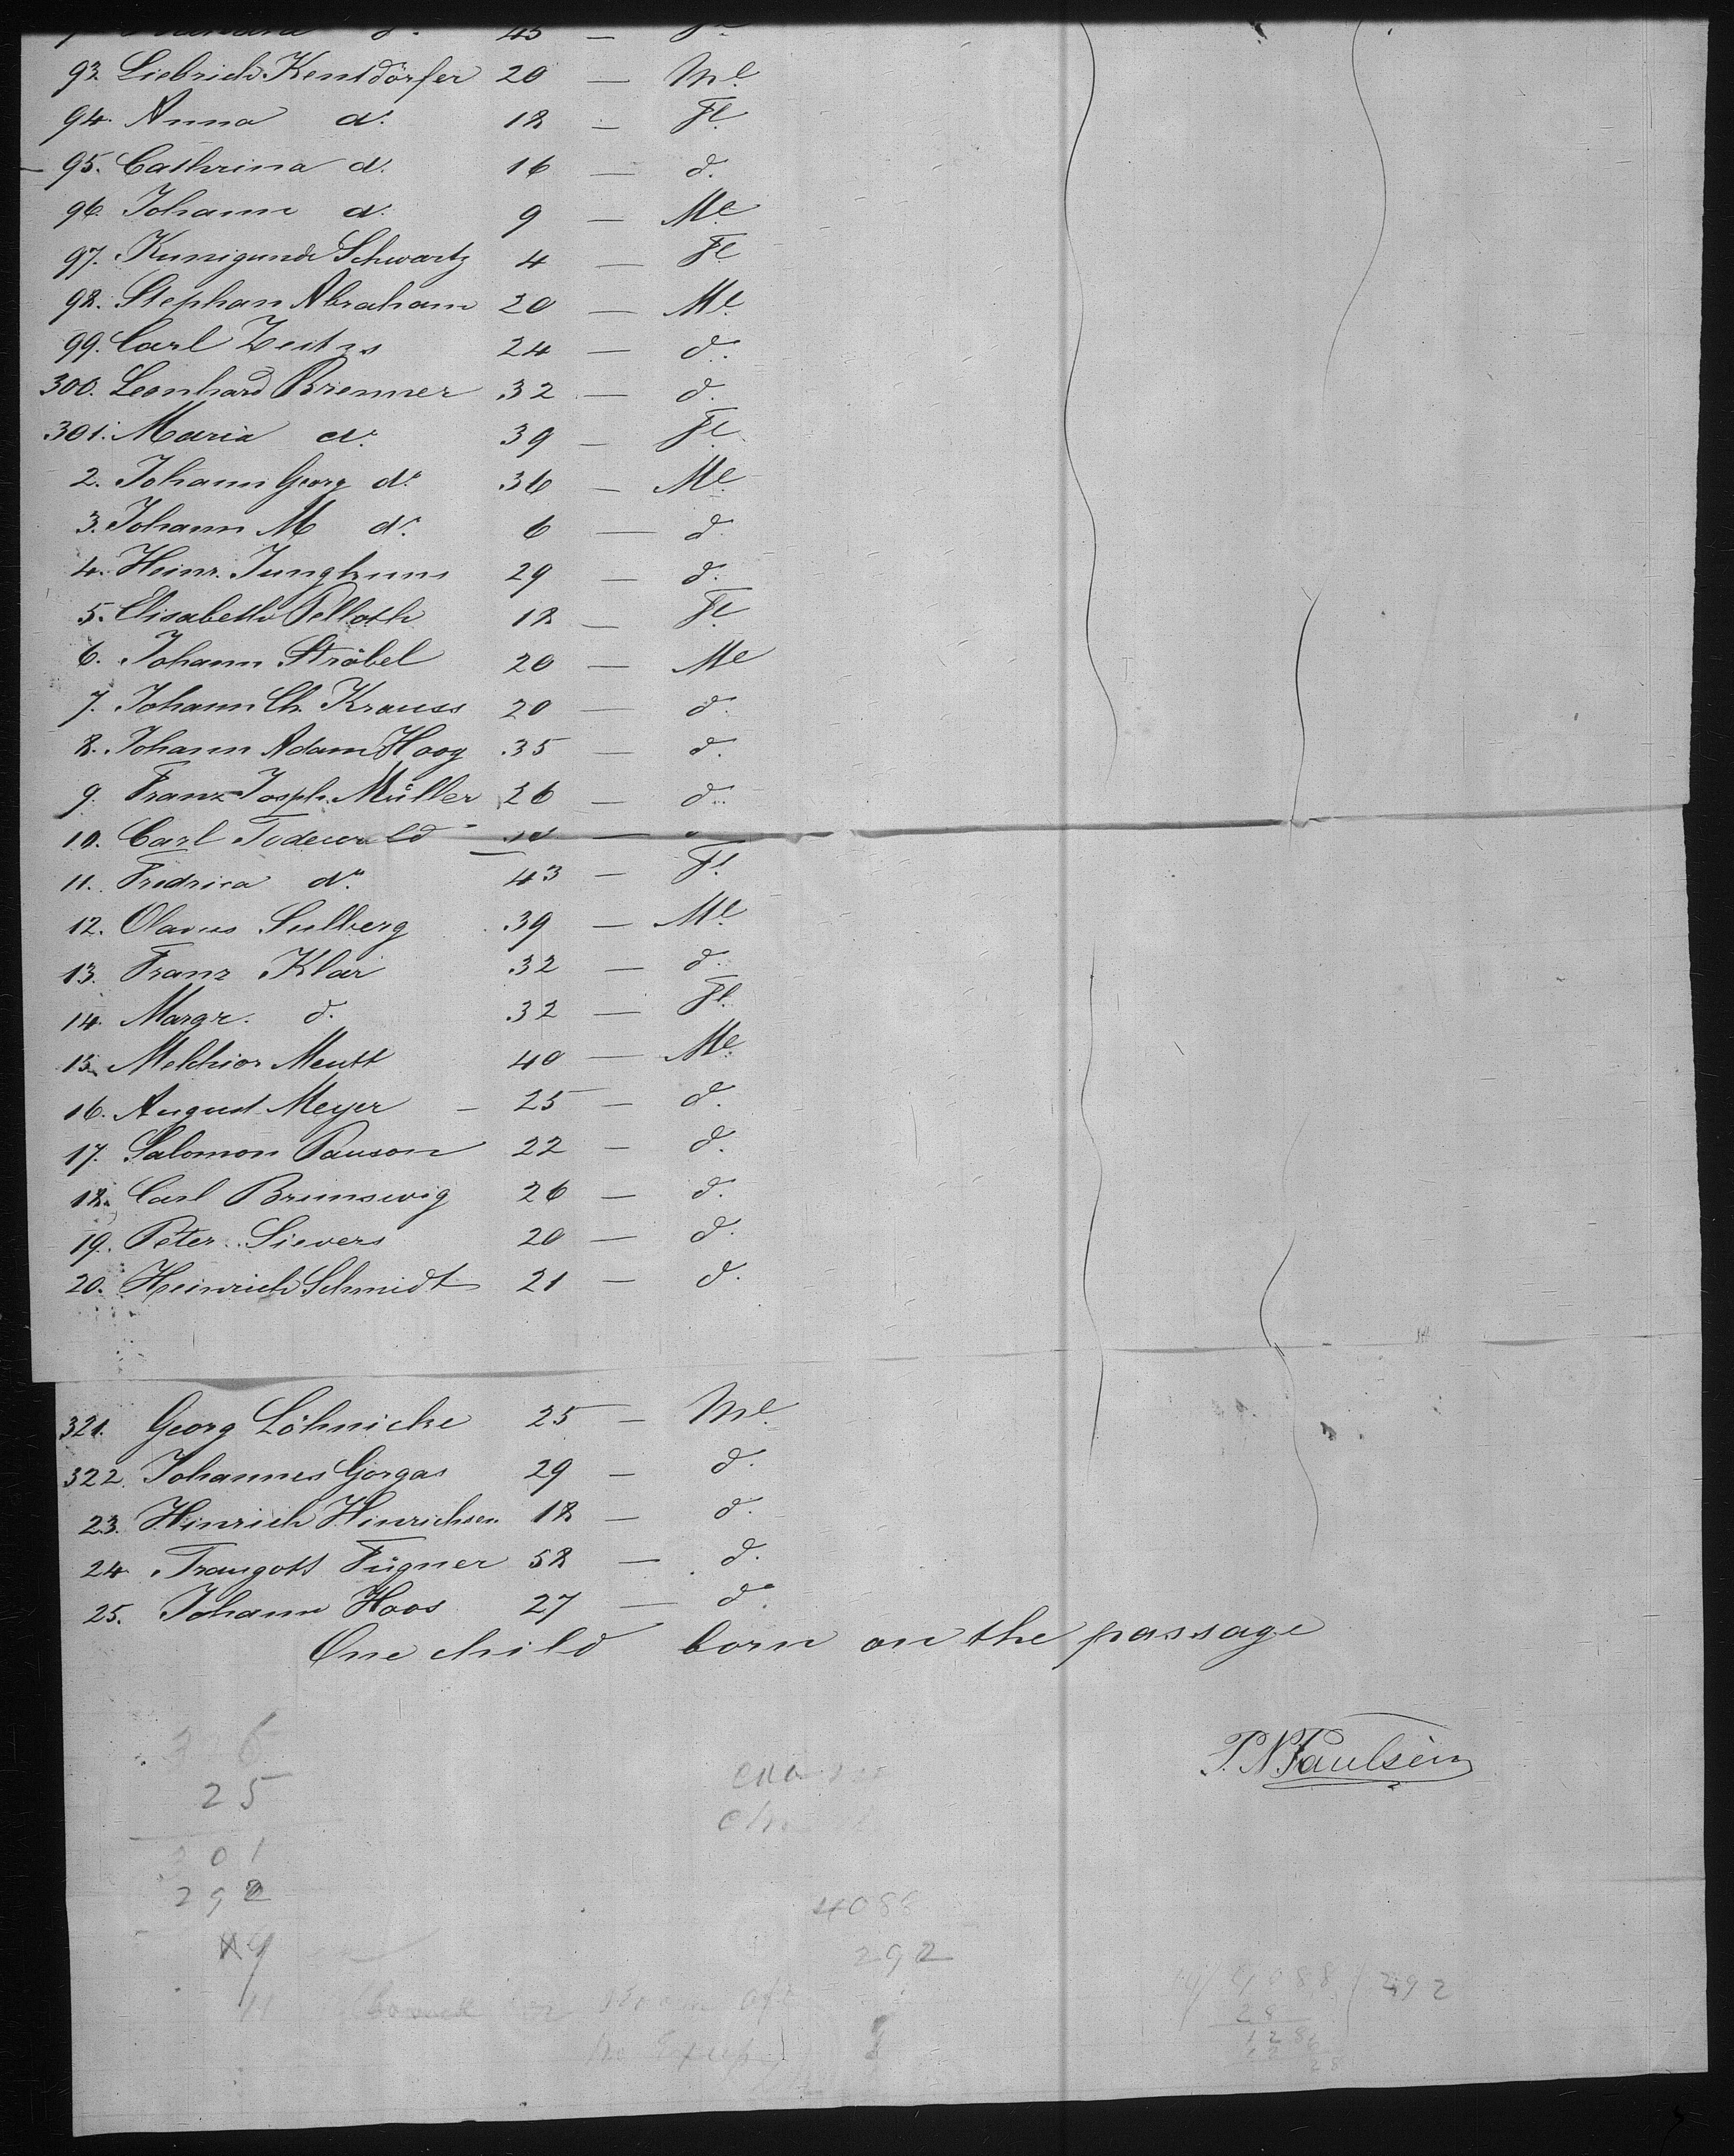 45 —
93. Liebrich Kentdörfer 20 — Ml.
94. Anna do. 18 — Fl.
95. Cathrina do. 16 — d.
96. Johann do. 9 — Ml.
97. Kunigunde Schwartz 4 — Fl.
98. Stephan Abraham 20 — Ml.
99. Carl Zeitzs 24 — d.
300. Leonhard Brenner 32 — d.
301. Maria do. 39 — Fl.
2. Johann Georg do. 36 — Ml.
3. Johann M do. 6 — d.
4. Heinr. Junghuns 29 — d.
5. Elisabeth Pelloth 18 — Fl.
6. Johann Ströbel 20 — Ml
7. Johann Ch. Krauss 20 — d.
8. Johann Adam Hoog 35 — d.
9. Franz Joseph Müller 26 — d.
10. Carl Todewald —
11. Fredrica do. 43 — Fl.
12. Olavus Sulberg 39 — Ml.
13. Franz Klär 32 — d.
14. Margr. d. 32 — Fl.
15. Melchior Meutt 40 — Ml.
16. August Meyer — 25 — d.
17. Salomon Pauson 22 — d.
18. Carl Brunswig 26 — d.
19. Peter Sievers 20 — d.
20. Heinrich Schmidt 21 — d.
321. Georg Löhnicke 25 — Ml.
322. Johannes Gorgas 29 — d.
23. Hinrich Hinrichsen 18 — d.
24. Traugott Fügner 58 — d.
25. Johann Hoos 27 — d.
One child born on the passage
P. N. Paulsen
326
25
301
292
9
4088
292
14 / 4088 / 292
28
128
126
28